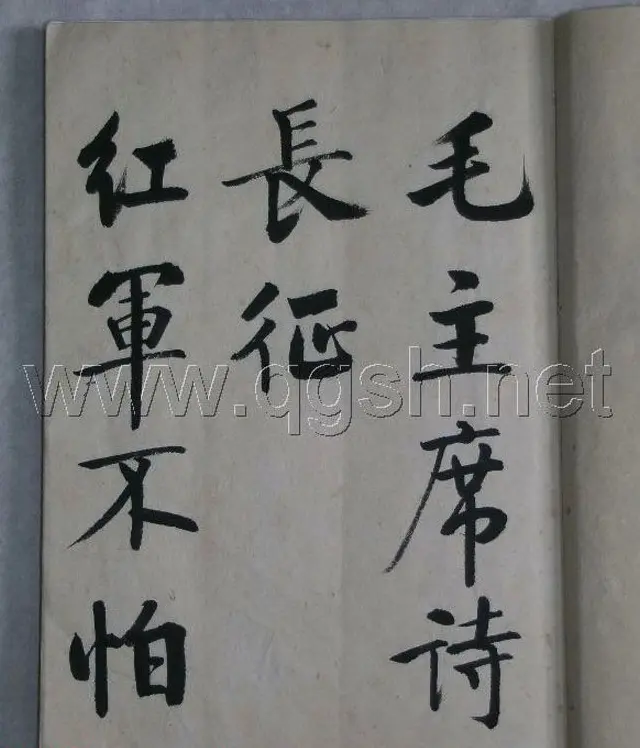 毛主席诗
長征
红軍不怕
www.qgsh.net